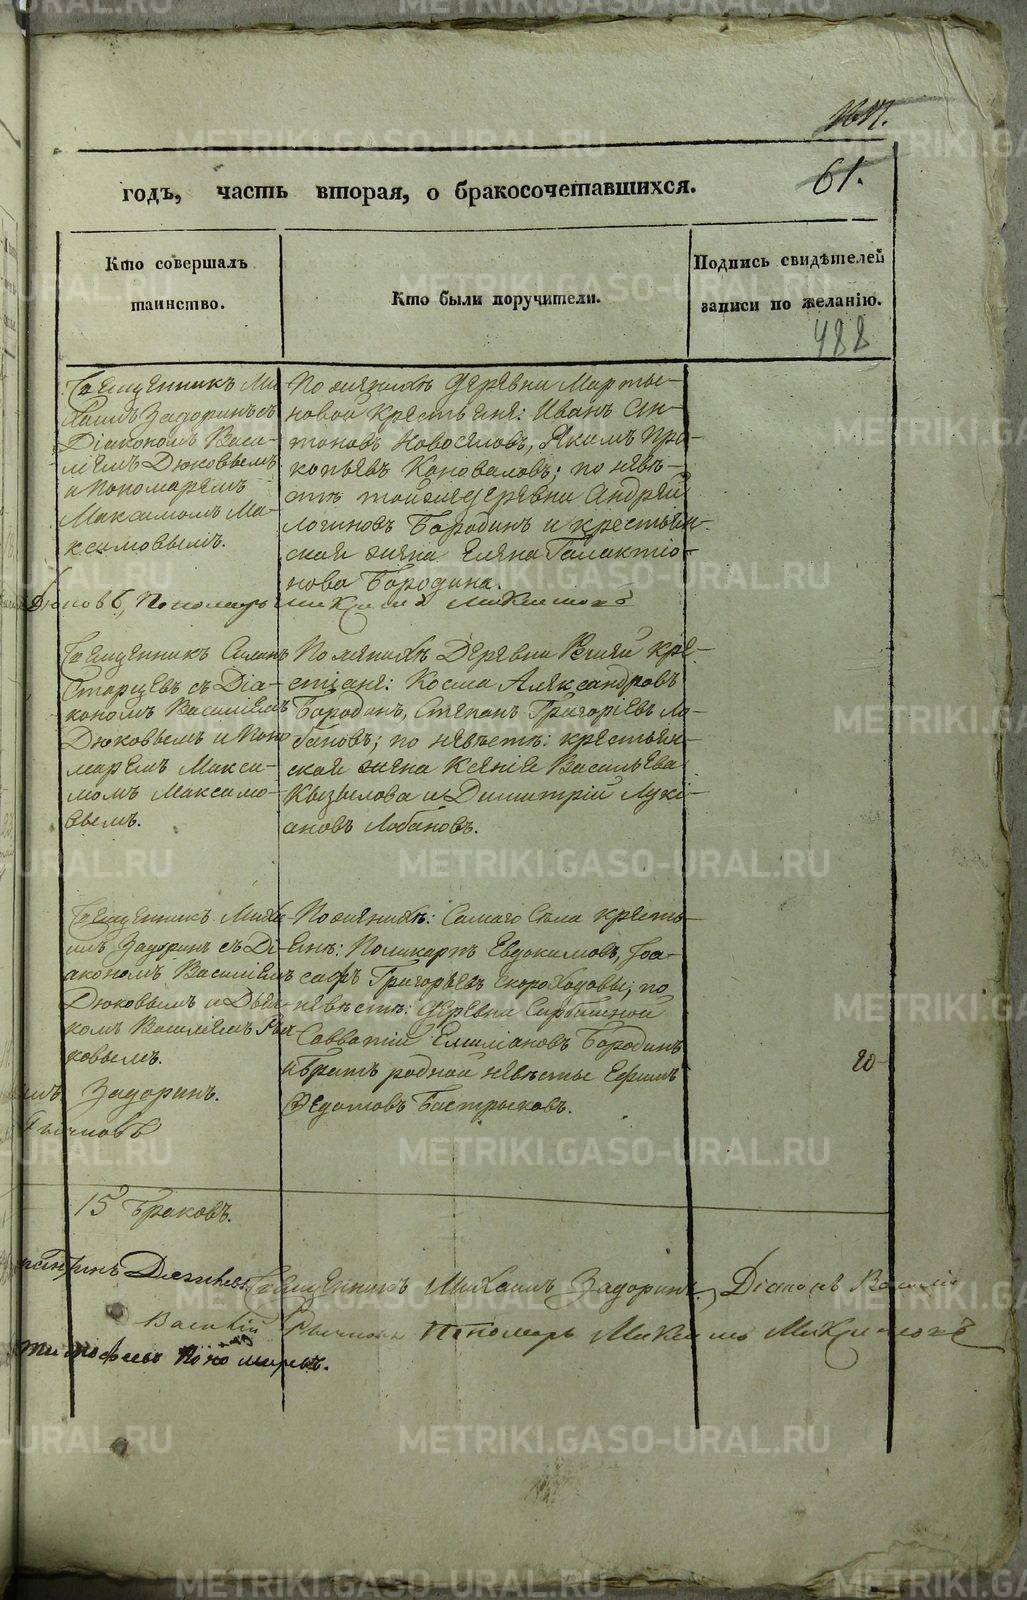 61.
годъ, часть вторая, о бракосочетавшихся.
Кто совершалъ
таинство.
Кто были поручители.
Подпись свидѣтелей
записи по желанію.
488
Священникъ Ми-
хаилъ Задоринъ съ
Діакономъ Васи-
лiемъ Дюковымъ
и Пономаремъ
Максимомъ Ма-
ксимовымъ.
По женихѣ деревни Марты-
новой крестьяне: Иванъ Ан-
тоновъ Новоселовъ, Якимъ Про-
копьевъ Коноваловъ; по невѣ-
стѣ тойже деревни Андрей
Логиновъ Бородинъ и крестьян-
ская жена Елена Галактіо-
нова Бородина.
Дюковъ, Пономарь
Священникъ
Старцевъ съ Діа-
кономъ Василіемъ
Дюковымъ и Поно
маремъ Макси-
момъ Максимо-
вымъ.
По женихѣ Деревни кре-
стіане: Косма Александровъ
Бородинъ, Степанъ Григоріевъ Ло-
бановъ; по невѣстѣ: крестьян-
ская жена Ксенія Васильева
Кызылова и Димитрій Лукі-
ановъ Лобановъ.
Священникъ Миха-
илъ Задоринъ съ Ді-
акономъ Василіемъ
Дюковымъ и Дьяч-
комъ Василіемъ Рыч
ковымъ.
По женихѣ: Самаго Села кресть-
яне: Поликарпъ Евдокимовъ, Іоа-
сафъ Григорьевъ Скороходовы; по
невѣстѣ: деревни
Савватій Емиліановъ Бородинъ
и братъ родной невѣсты Ефимъ
Федотовъ Бастрыковъ.
20
Задоринъ.
Рычковъ
15 браковъ.
Священникъ Михаилъ Задоринъ, Діаконъ Василій
Василій Рычковъ Пономарь Максимъ Максимовъ
Тимофеевъ Пономаревъ.
METRIKI.GASO-URAL.RU